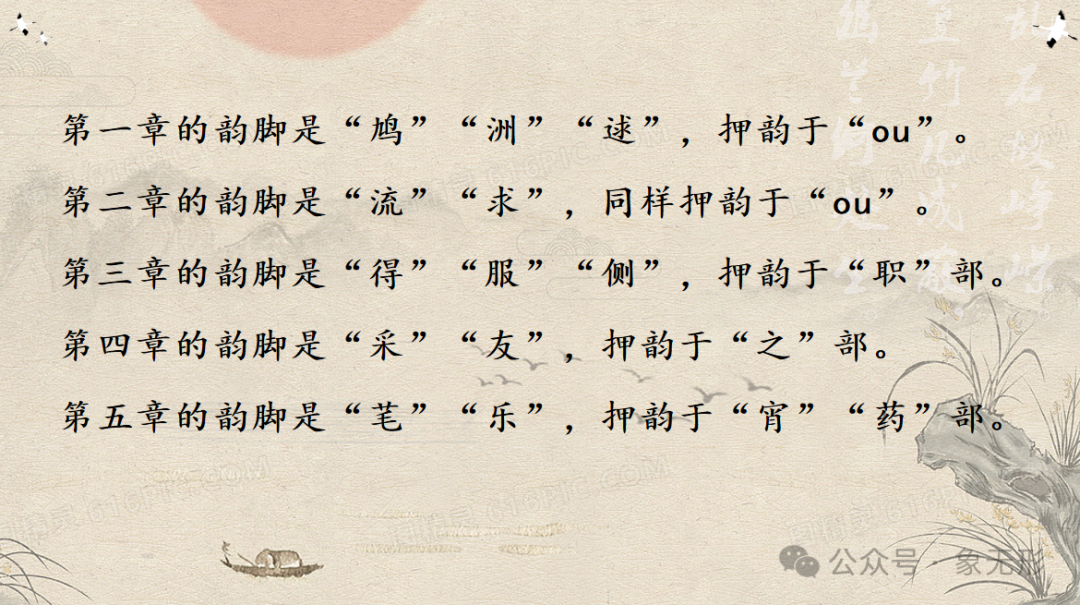 第一章的韵脚是“鸠”“洲”“逑”，押韵于“ou”。
第二章的韵脚是“流”“求”，同样押韵于“ou”。
第三章的韵脚是“得”“服”“侧”，押韵于“职”部。
第四章的韵脚是“采”“友”，押韵于“之”部。
第五章的韵脚是“芼”“乐”，押韵于“宵”“药”部。
公众号·象无形